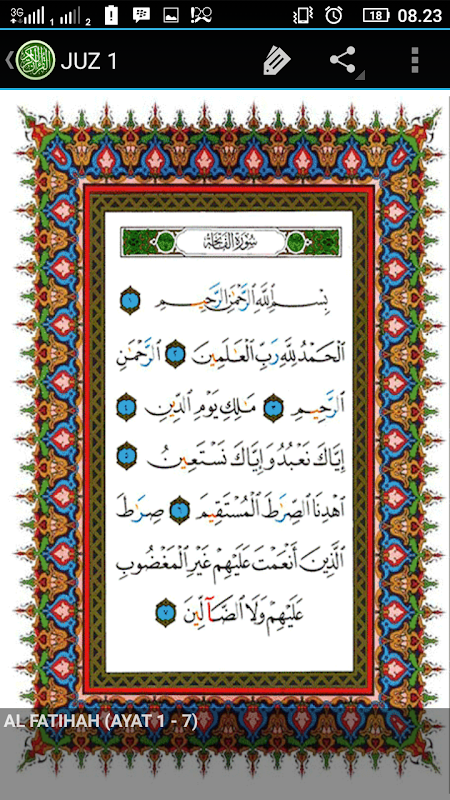 3G 1 2 18 08.23
JUZ 1
سُورَةُ الفَاتِحَة
بِسْمِ اللَّهِ الرَّحْمَٰنِ الرَّحِيمِ ١
الْحَمْدُ لِلَّهِ رَبِّ الْعَٰلَمِينَ ٢ الرَّحْمَٰنِ
الرَّحِيمِ ٣ مَٰلِكِ يَوْمِ الدِّينِ ٤
إِيَّاكَ نَعْبُدُ وَإِيَّاكَ نَسْتَعِينُ ٥
اهْدِنَا الصِّرَٰطَ الْمُسْتَقِيمَ ٦ صِرَٰطَ
الَّذِينَ أَنْعَمْتَ عَلَيْهِمْ غَيْرِ الْمَغْضُوبِ
عَلَيْهِمْ وَلَا الضَّآلِّينَ ٧
AL FATIHAH (AYAT 1 - 7)